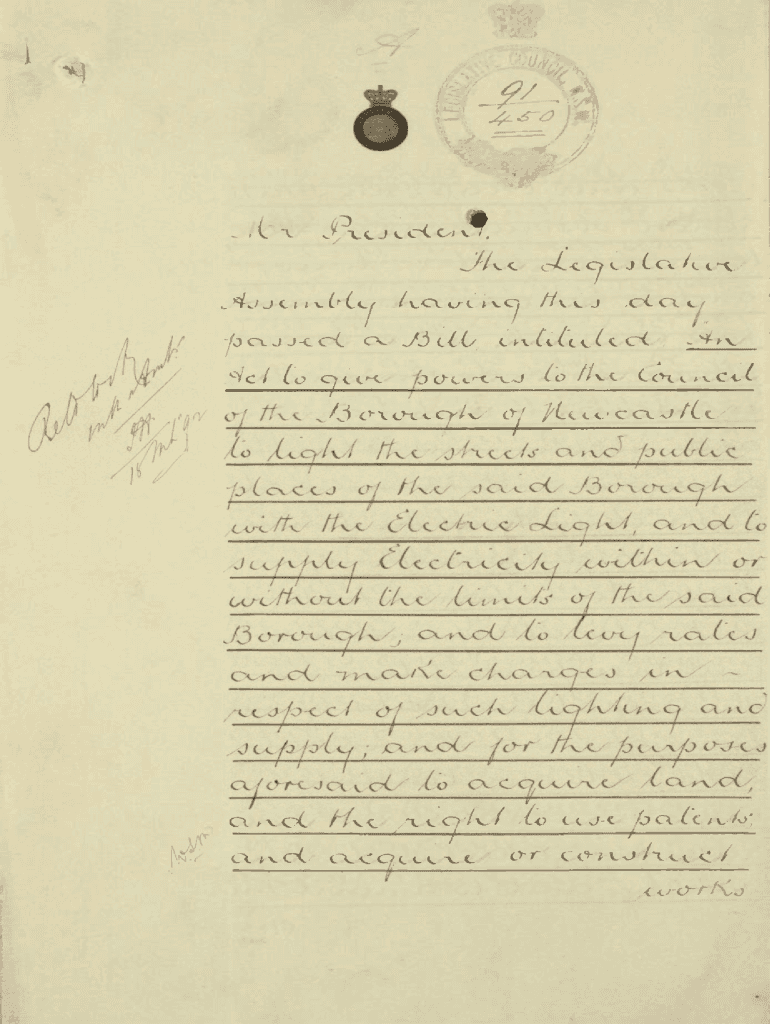 A
LEGISLATIVE COUNCIL, N.S.W.
91
450
Mr President.
The Legislative
Assembly having this day
passed a Bill intituled An
Act to give powers to the Council
of the Borough of Newcastle
to light the streets and public
places of the said Borough
with the Electric Light, and to
supply Electricity within or
without the limits of the said
Borough; and to levy rates
and make charges in -
respect of such lighting and
supply; and for the purposes
aforesaid to acquire land,
and the right to use patents;
and acquire or construct
works